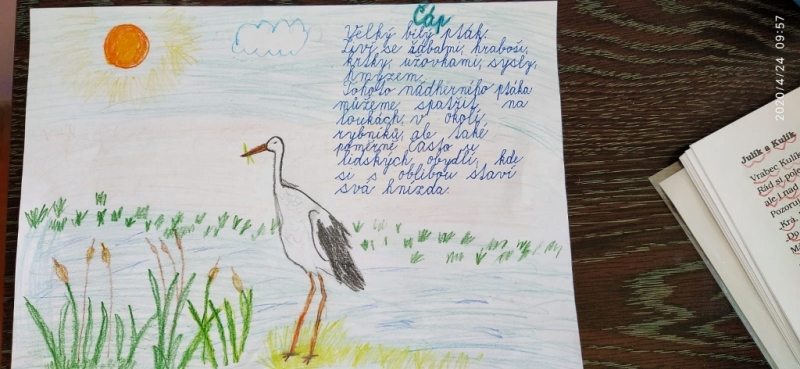 Čáp
Velký bílý pták.
Živí se žábami, hraboši,
krtky, užovkami, sysly,
hmyzem.
Tohoto nádherného ptáka
můžeme spatřit na
loukách, v okolí
rybníků, ale také
poměrně často u
lidských obydlí, kde
si s oblibou staví
svá hnízda.
2020/4/24 09:57
Julik a Kulik
Vrabec Kulík
Rád si
ale i nad
Pozoru
Krá
Do